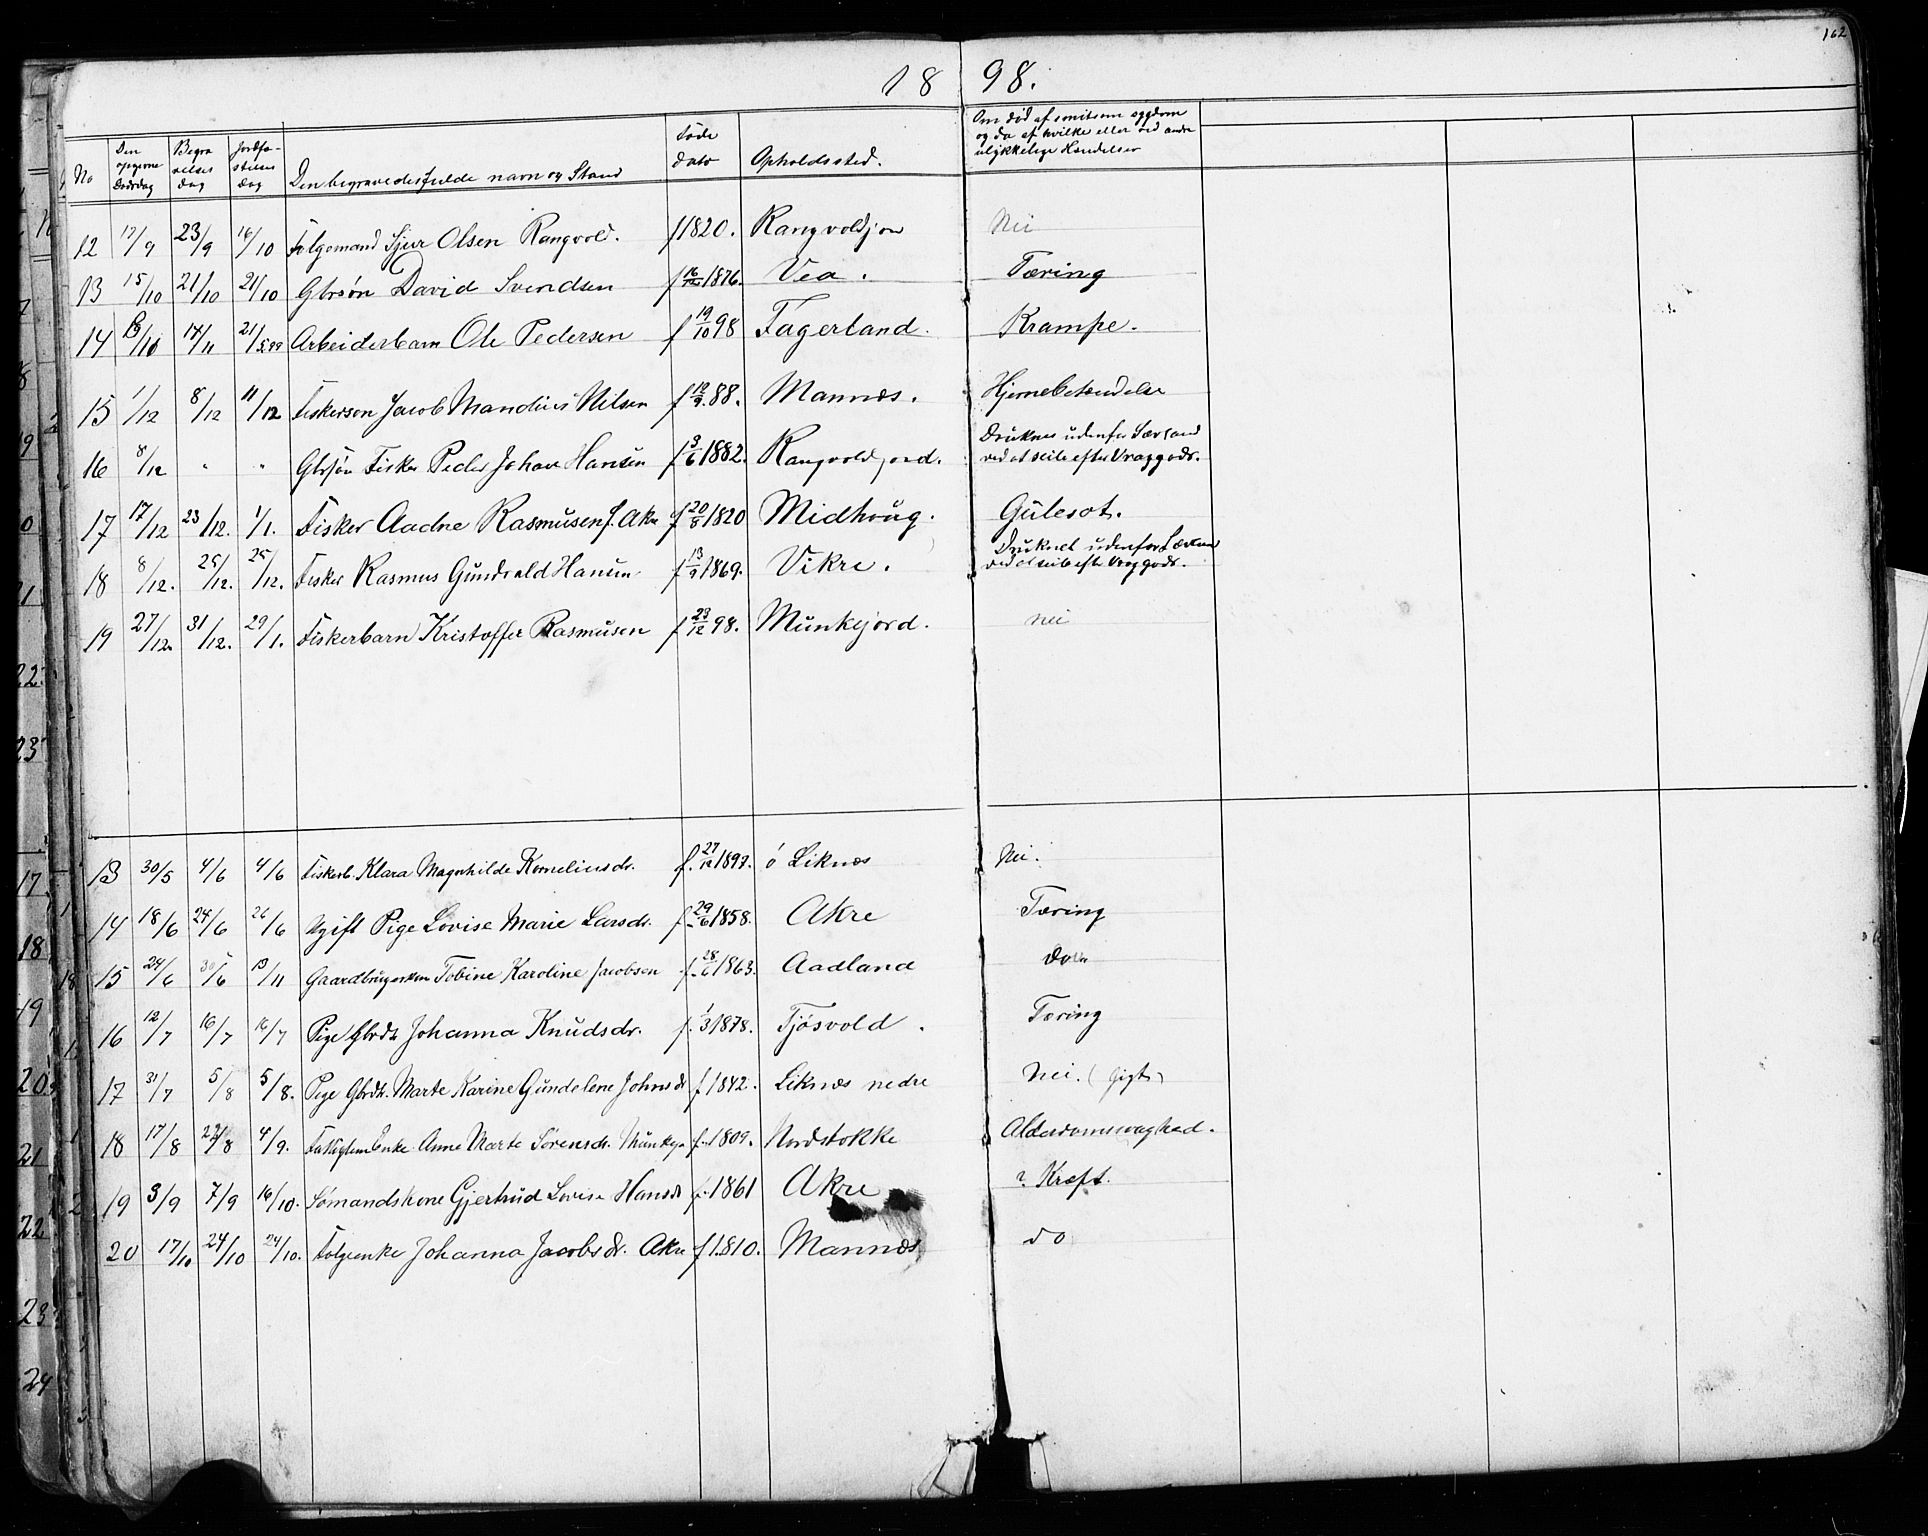 162
18 98.
No | Den opgivne Dødsdag | Begravelses dag | Jordfæstelses dag | Den begravedes fulde navn og Stand | Føde dato | Opholdssted. | Om død af smitsom sygdom og da af hvilke eller ved andre ulykkelige Hændelser
12 17/9 23/9 16/10 Følgemand Sjur Olsen Rangvold. f 1820. Rangvoldjor Nei
13 15/10 21/10 21/10 Gbrsøn David Svendsen f 16/12 1876. Vea. Tæring
14 /10 14/11 21/5.99 Arbeiderbarn Ole Pedersen f 19/10 98 Fagerland. Krampe.
15 1/12 8/12 11/12 Fiskersøn Jacob Mandius Nilsen f 12/9. 88. Mannes. Hjernebetændelse
16 8/12 " " Gbrsøn Fisker Peder Johan Hansen f 3/6 1882. Rangvoldjord. Druknet udenfor ved at seile efter Vraggods.
17 17/12 23/12. 1/1. Fisker Aadne Rasmusen f. Akre f 20/8 1820 Midhoug. Gulesot.
18 8/12. 25/12. 25/12. Fisker Rasmus Gundvald Hansen f 13/9 1869. Vikre. Druknet udenfor ved at seile efter Vraggods.
19 27/12. 31/12. 29/1. Fiskerbarn Kristoffer Rasmusen f 23/12 98. Munkejord. nei
13 30/5 4/6 4/6 Fiskerb. Klara Magnhilde Korneliusdr. f. 27/12 1897. ö Liknes Nei.
14 18/6 24/6 26/6 Ugift Pige Lovise Marie Larsdr. f 29/6 1858. Akre Tæring
15 24/6 30/6 13/11 Gaardbrugerkone Tobine Karoline Jacobsen f. 28/6 1863. Aadland do
16 12/7 16/7 16/7 Pige Gbrdt. Johanna Knudsdr. f. 1/3 1878. Tjösvold. Tæring
17 31/7 5/8 5/8. Pige Gbrdt. Marte Karine Gundelene Johnsdr f. 1842. Liknes nedre Nei. (Gigt)
18 17/8 22/8 4/9. Fattiglem Enke Anne Marte Sörensdr. Munkejo f. 1809. Nordstokke Alderdomssvaghed.
19 3/9 7/9 16/10. Sømandskone Gjertrud Lovise Hansdr f. 1861 Akre ? Kræft.
20 17/10 24/10 24/10. Følgeenke Johanna Jacobsdr. Akre f 1810. Mannes do